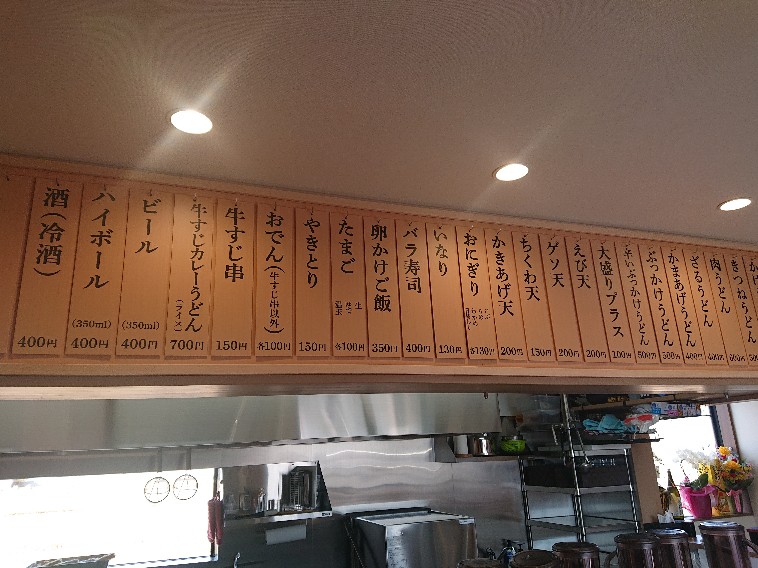 きつねうどん
肉うどん
400円
ざるうどん
400円
かまあげうどん
500円
ぶっかけうどん
500円
辛いぶっかけうどん
大盛りプラス
100円
えび天
200円
ゲソ天
200円
ちくわ天
150円
かきあげ天
200円
おにぎり
各130円
いなり
130円
バラ寿司
400円
卵かけご飯
350円
たまご
各100円
やきとり
150円
おでん(牛すじ串以外)
各100円
牛すじ串
150円
牛すじカレーうどん
(ライス)
700円
ビール
(350ml)
400円
ハイボール
(350ml)
400円
酒(冷酒)
400円